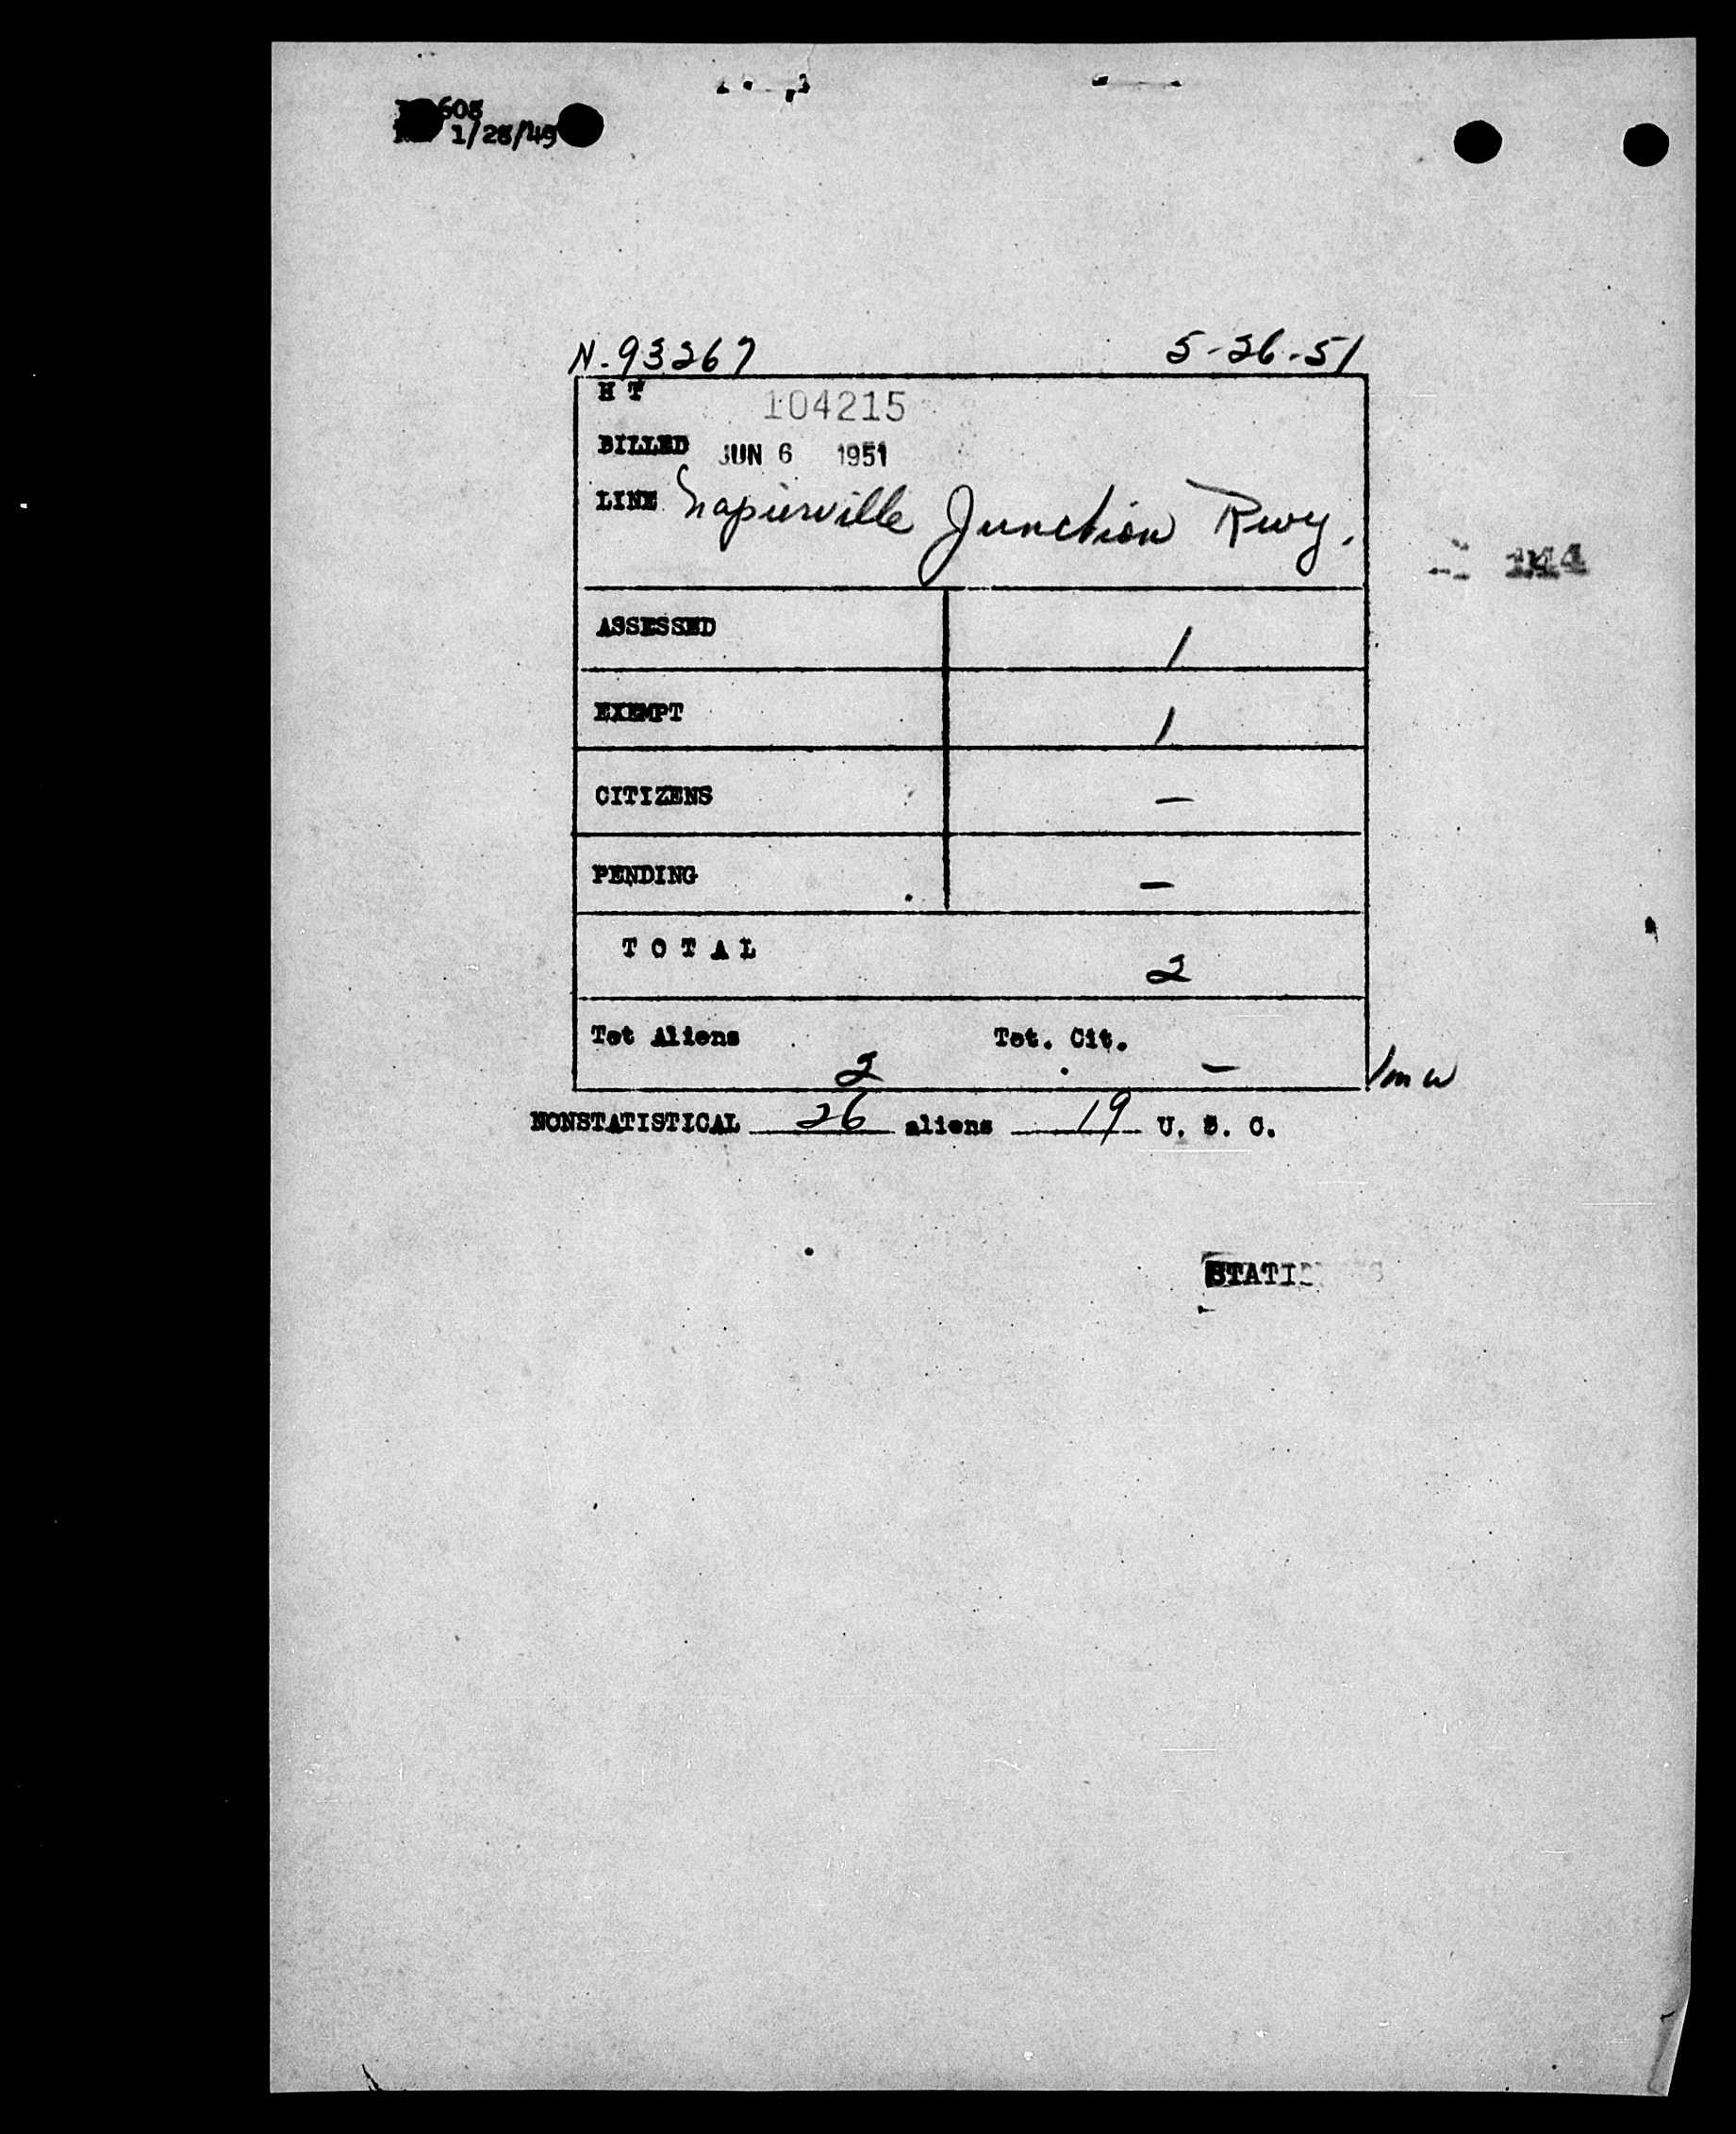 608
1/28/49
N-93267 5-26-51
H T 104215
BILLED JUN 6 1951
LINE Napierville Junction Rwy.
144
ASSESSED 1
EXEMPT 1
CITIZENS —
PENDING —
T O T A L 2
Tot Aliens 2 Tot. Cit. —
NONSTATISTICAL 26 aliens 19 U. S. C.